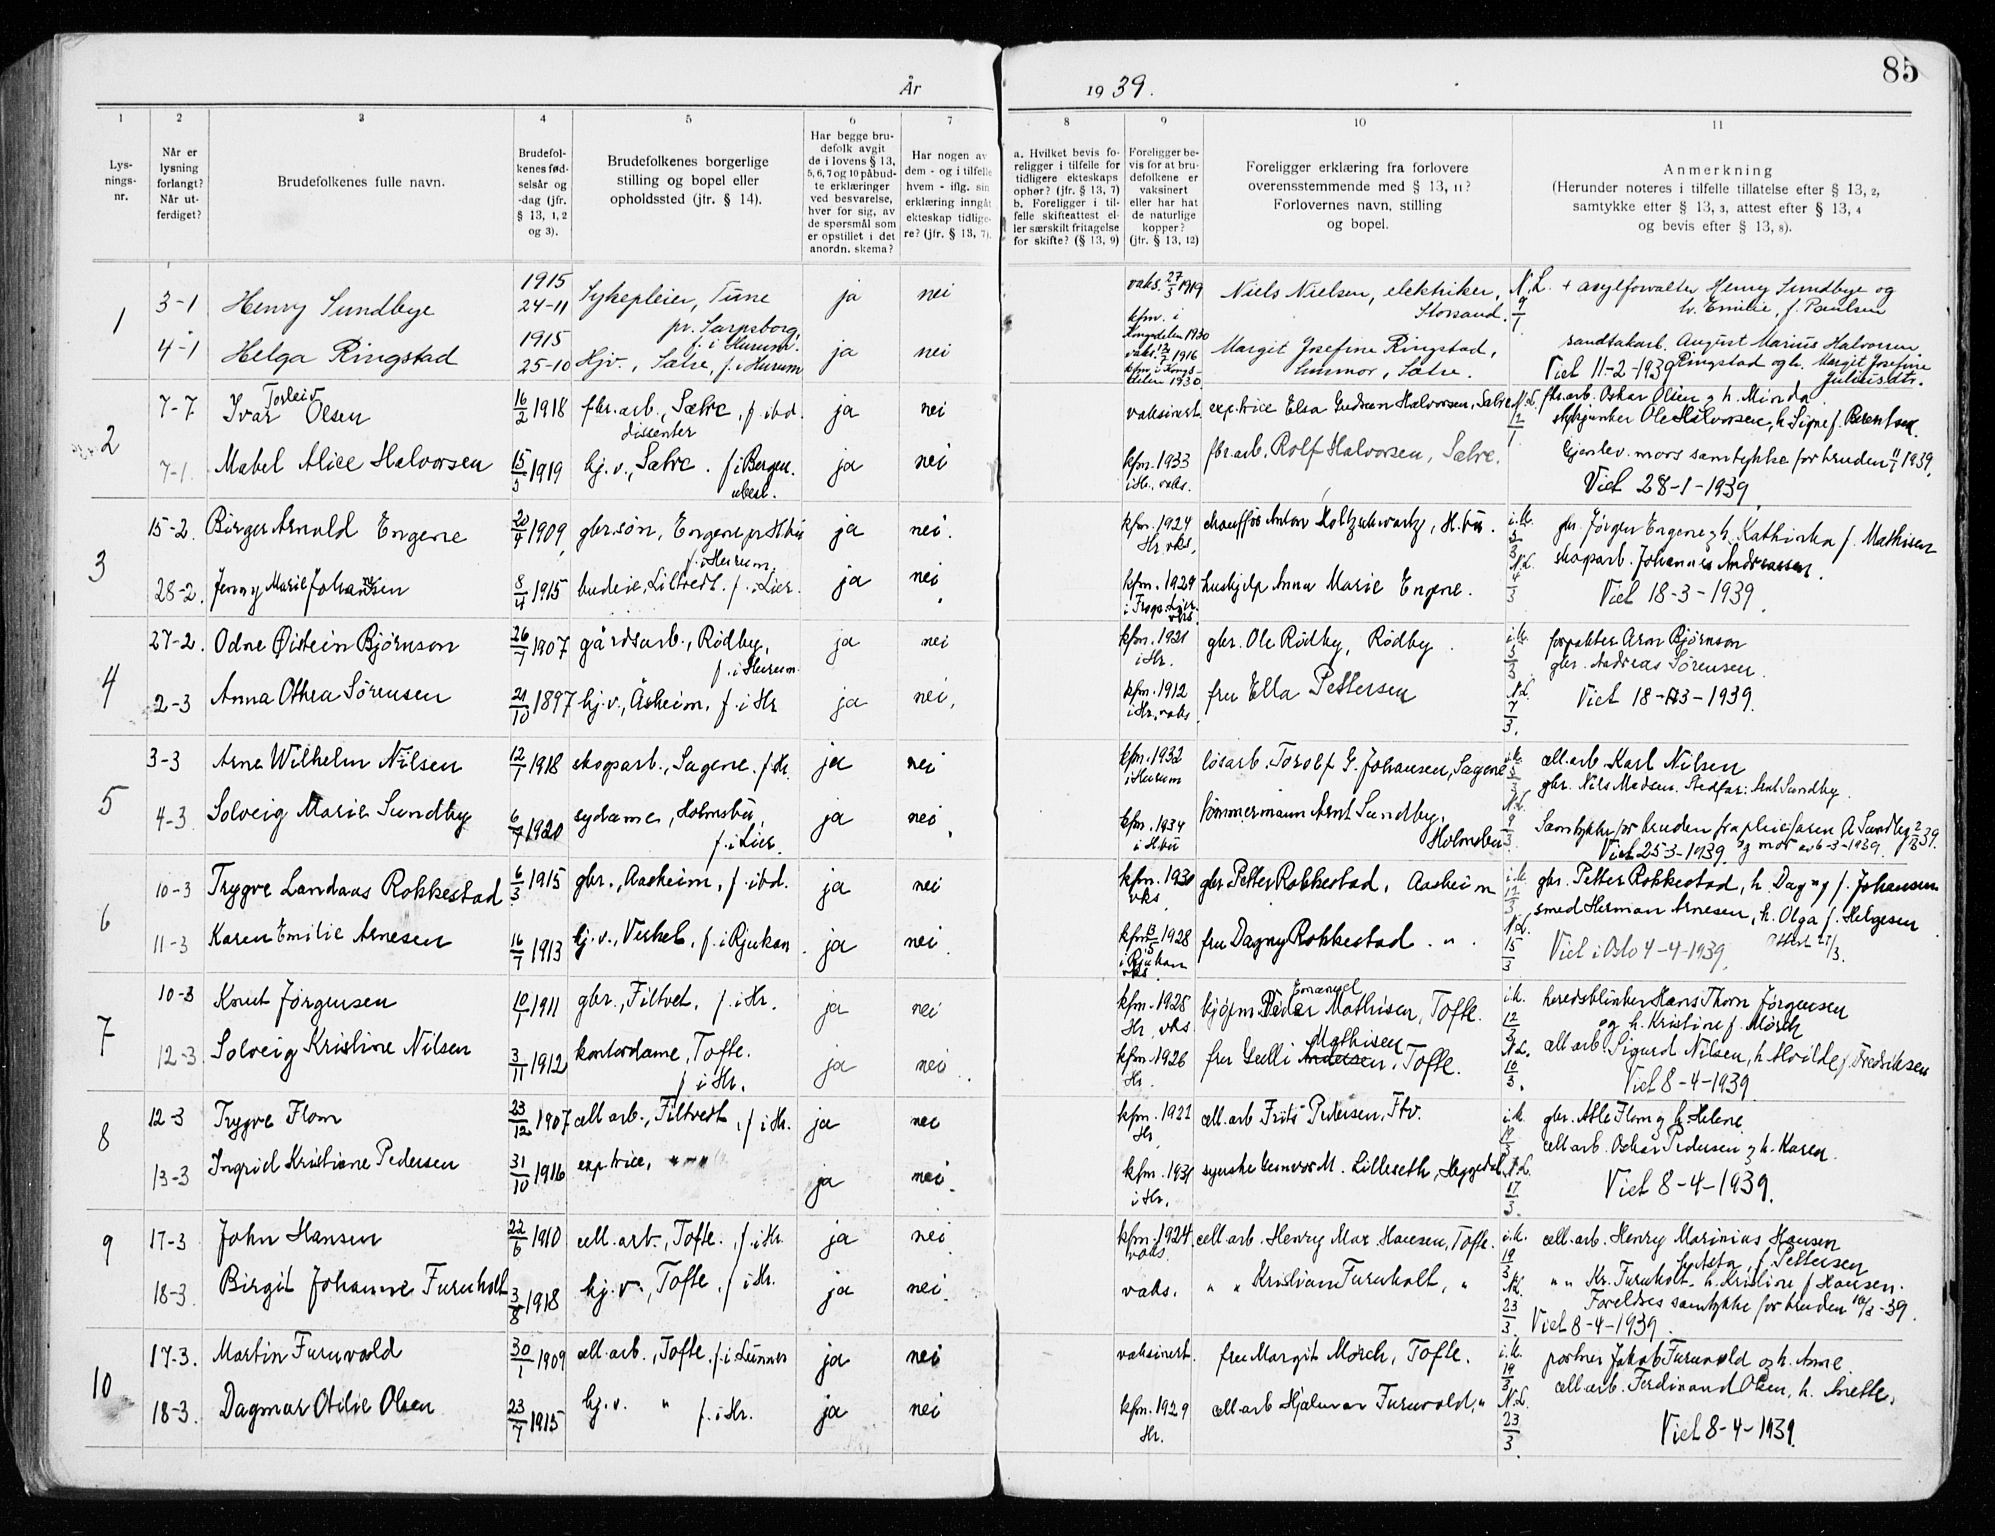 85
År 1939.
1 2 3 4 5 6 7 8 9 10 11
Lysningsnr.
Når er lysning forlangt? Når utferdiget?
Brudefolkenes fulle navn.
Brudefolkenes fødselsår og -dag (jfr. § 13, 1, 2 og 3).
Brudefolkenes borgerlige stilling og bopel eller opholdssted (jfr. § 14).
Har begge brudefolk avgit de i lovens § 13, 5, 6, 7 og 10 påbudte erklæringer ved besvarelse, hver for sig, av de spørsmål som er opstillet i det anordn. skema?
Har nogen av dem - og i tilfelle hvem - iflg. sin erklæring inngåt ekteskap tidligere? (jfr. § 13, 7).
a. Hvilket bevis foreligger i tilfelle for tidligere ekteskaps ophør? (jfr. § 13, 7) b. Foreligger i tilfelle skifteattest eller særskilt fritagelse for skifte? (§ 13, 9)
Foreligger bevis for at brudefolkene er vaksinert eller har hat de naturlige kopper? (jfr. § 13, 12)
Foreligger erklæring fra forlovere overensstemmende med § 13, 11? Forlovernes navn, stilling og bopel.
Anmerkning (Herunder noteres i tilfelle tillatelse efter § 13, 2, samtykke efter § 13, 3, attest efter § 13, 4 og bevis efter § 13, 8).
1
3-1 Henry Sundbye 1915 24-11 Sykepleier, Tune pr. Sarpsborg, f. i Hurum. ja nei vaks. 27/3 1919 kfm. i Kongsdelen 1930 Niels Nielsen, elektriker, Storsand. N.L. 9/1 + asylforvalter Henry Sundbye og h. Emilie, f. Paulsen
4-1 Helga Ringstad 1915 25-10 Hjv., Sætre, f. i Hurum ja nei vaks. 12/7 1916 kfm. i Kongsdelen 1930. Margit Josefine Ringstad, husmor, Sætre. sandtakarb. August Marius Halvorsen Ringstad og h. Margit Josefine Juliusdtr.
Viet 11-2-1939
2
7-7 Ivar Torleiv Olsen 16/2 1918 fbr.arb., Sætre, f. ibd. dissenter ja nei vaksinert. exp.trice Elsa Gudrun Halvorsen, Sætre N.L. 12/1. fbr.arb. Oskar Olsen og h. Minda.
7-1. Mabel Alice Halvorsen 15/5 1919 hj.v., Sætre. f. i Bergen. ja nei kfm. 1933 i Hr., vaks. fbr.arb. Rolf Halvorsen, Sætre. Ole Halvorsen, h. Signe f. Berentsen.
Gjenlev. mors samtykke for bruden 11/1 1939.
Viet 28-1-1939
3
15-2. Birger Arnold Engene 20/4 1909, gbr.søn, Engene pr H.bu f. i Hurum. ja nei. kfm. 1924 Hr. vks, chauffør Anton Holtzschwartz, H.bu. i.k. 3/3 gbr. Jørgen Engene og h. Kathinka f. Mathisen
28-2. Jenny Marie Johansen 8/4 1915 budeie, Liltvedt. f. i Lier. ja nei. kfm. 1929 i Frogn. Lier. vks hushjelp Anna Marie Engene. N.L. 4/3 skogarb. Johannes Andreassen.
Viet 18-3-1939.
4
27-2. Odne Øistein Bjørnson 26/7 1907 gårdsarb., Rødby, f. i Hurum. ja nei kfm. 1921 i Hr. gbr. Ole Rødby, Rødby. i.k. 3/3 forpakter Arn Bjørnson
2-3 Anna Othea Sørensen 21/10 1897 hj.v., Åsheim, f. i Hr ja nei. kfm. 1912 i Hr., vaks. fru Ella Pettersen N.L. 7/3. gbr. Andreas Sørensen.
Viet 18-3-1939.
5
3-3 Arne Wilhelm Nilsen 12/1 1918 skogsarb., Sagene. f. Hr. ja nei. kfm. 1932 i Hurum løsarb. Torolf G. Johansen, Sagene i.k. 3/3 cell.arb. Karl Nilsen
4-3. Solveig Marie Sundby 6/7 1920 sydame, Holmsbu, f. i Lier. ja nei. kfm. 1934 i H.bu tømmermann Arnt Sundby, Holmsbu N.L. 9/3. gbr. Nils Madsen. Stedfar: Arnt Sundby.
Samtykke for bruden fra pleiefaren A. Sundby 2/3 39. og mor av 6-3-1939.
Viet 25-3-1939.
6
10-3 Trygve Landaas Rokkestad 6/3 1915 gbr., Aasheim, f. ibd. ja nei kfm. 1930 vks gbr. Petter Rokkestad, Aasheim i.k. 12/3 gbr. Petter Rokkestad, h. Dagny f. Johansen
11-3 Karen Emilie Arnesen 16/7 1913 hj.v., Verket, f. i Rjukan. ja nei. kfm. 13/5 1928 i Rjukan vks fru Dagny Rokkestad. " N.L. 15/3 smed Herman Arnesen, h. Olga f. Helgesen.
Viet i Oslo 4-4-1939.
7
10-3 Knut Jørgensen 10/1 1911 gbr., Filtvet, f. i Hr. ja nei kfm. 1925 Hr. vks Peder Emanuel Mathisen, Tofte. i.k. 12/3 herredsblinker Hans Thorn Jørgensen og h. Kristine f. Mørch
12-3 Solveig Kristine Nilsen 3/11 1912 kontordame, Tofte. f. i Hr. ja nei. kfm. 1926 Hr. fru Gulli Mathisen, Tofte. N.L. 16/3. cell.arb. Sigurd Nilsen, h. Hvilde f. Fredriksen
Viet 8-4-1939
8
12-3 Trygve Flom 23/12 1907 cell.arb., Filtvedt, f. i Hr. ja nei kfm. 1922 Hr. cell.arb. Frits Pedersen, Ftv. i.k. 14/3 gbr. Atle Flom og h. Helene.
13-3 Ingrid Kristiane Pedersen 31/10 1916 exp.trice, " " " ja nei. kfm. 1931 i Hr. Lilleseth, Heggedal N.L. 17/3. cell.arb. Oskar Pedersen og h. Karen.
Viet 8-4-1939.
9
17-3 John Hansen 22/6 1910 cell.arb., Tofte. f. i Hr. ja nei kfm. 1924. vaks. cell.arb. Henry Mar. Hansen, Tofte. i.k. 19/3 cell.arb. Henry Marinius Hansen og h. Asta, f. Pettersen
18-3. Birgit Johanne Furuholt 3/8 1918 hj.v., Tofte, f. i Hr. ja nei. vaks. " " Kristian Furuholt, " N.L. 23/3. " " Kr. Furuholt, h. Kristine f. Hansen.
Foreldres samtykke for bruden 18/3-39.
Viet 8-4-1939.
10
17-3. Martin Furuvald 30/1 1909 cell.arb., Tofte. f. i Lunner ja nei vaksinert. fru Margit Mørch, Tofte. i.k. 19/3 portner Jakob Furuvald og h. Anne.
18-3. Dagmar Otilie Olsen 23/7 1915 hj.v. " f. i Hr. ja nei kfm. 1929 Hr. cell.arb Hjalmar Furuvald, " N.L. 23/3 cell.arb. Ferdinand Olsen, h. Anette.
Viet 8-4-1939.